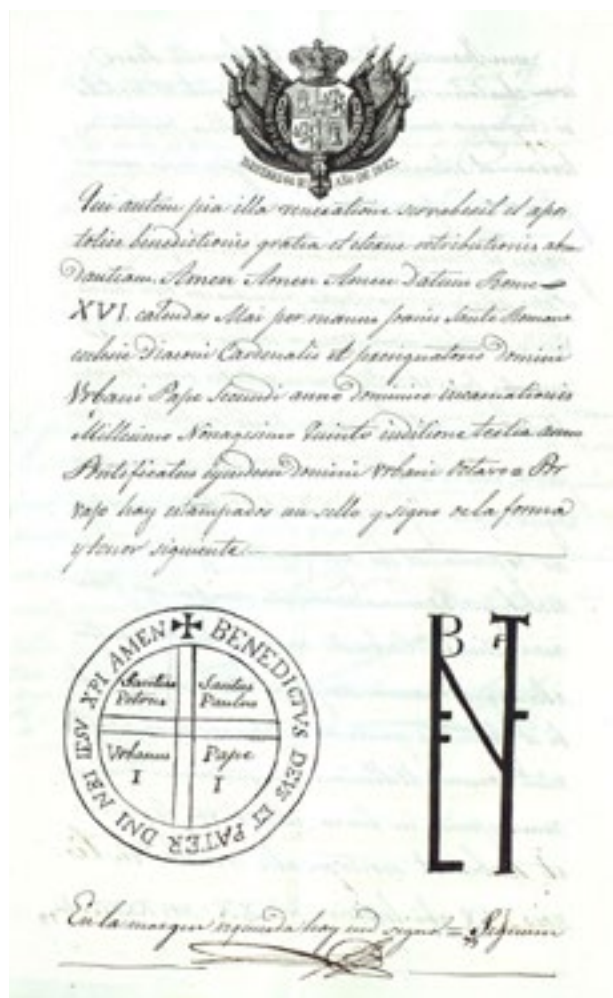 AÑO DE 1862.
Qui autem pia illa veneratione servaberit el apos
tolice benedictionis gratia et eterne retributionis abun
dantiam. Amen Amen Amen Datum Rome
XVI. calendas Mai per manus Joanis Sante Romane
eclesie Diaconi Cardenalis et domini
Vrbani Pape Secundi anno dominice incarnationis
Millesimo Nonagesimo Quinto inditione tertia anno
Pontificatus ejusdem domini Vrbani Octavo =
vajo hay estampados un sello y signo de la forma
y tenor siguiente
✠ BENEDICTVS DEVS ET PATER DNI NRI IESV XPI AMEN
Santus Petrus
Santus Paulus
Vrbanus I
Pape I
B T
E N F
L
En la margen izquierda hay un signo =